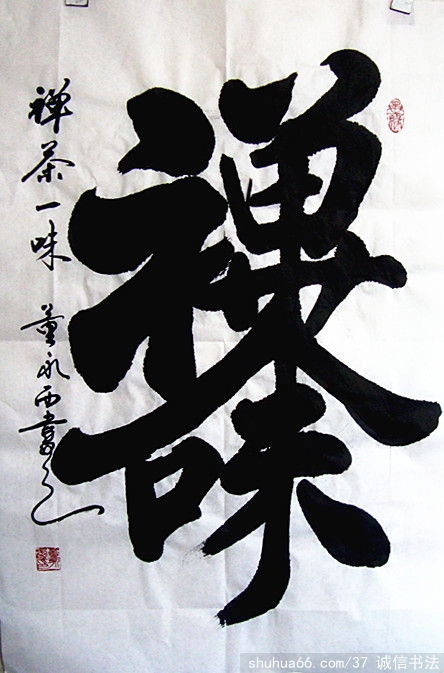 禅茶一味
禅茶一味 董永西书之
shuhua66.com/37 诚信书法